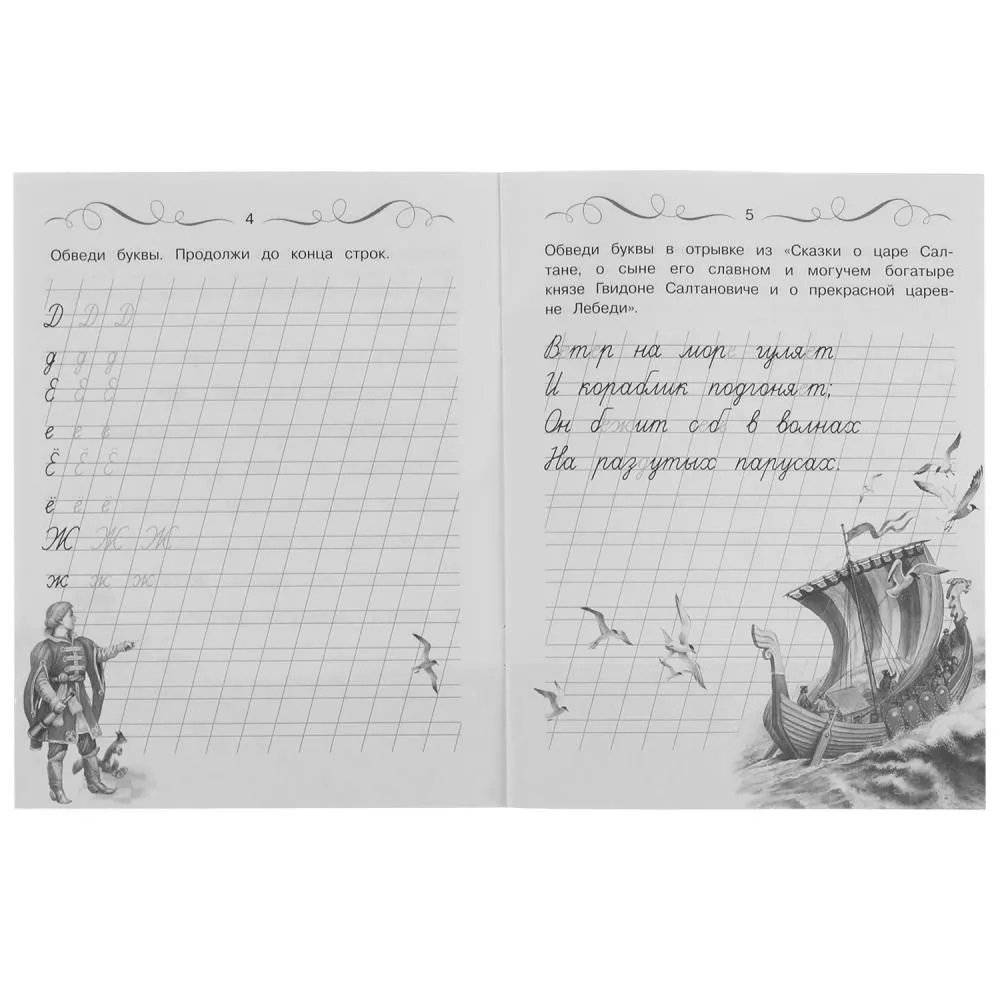 4
Обведи буквы. Продолжи до конца строк.
Д Д Д
д д д
Е Е Е
е е е
Ё Ё Ё
ё ё ё
Ж Ж Ж
ж ж ж
5
Обведи буквы в отрывке из «Сказки о царе Сал-
тане, о сыне его славном и могучем богатыре
князе Гвидоне Салтановиче и о прекрасной царев-
не Лебеди».
Ветер на море гуляет
И кораблик подгоняет;
Он бежит себе в волнах
На раздутых парусах.